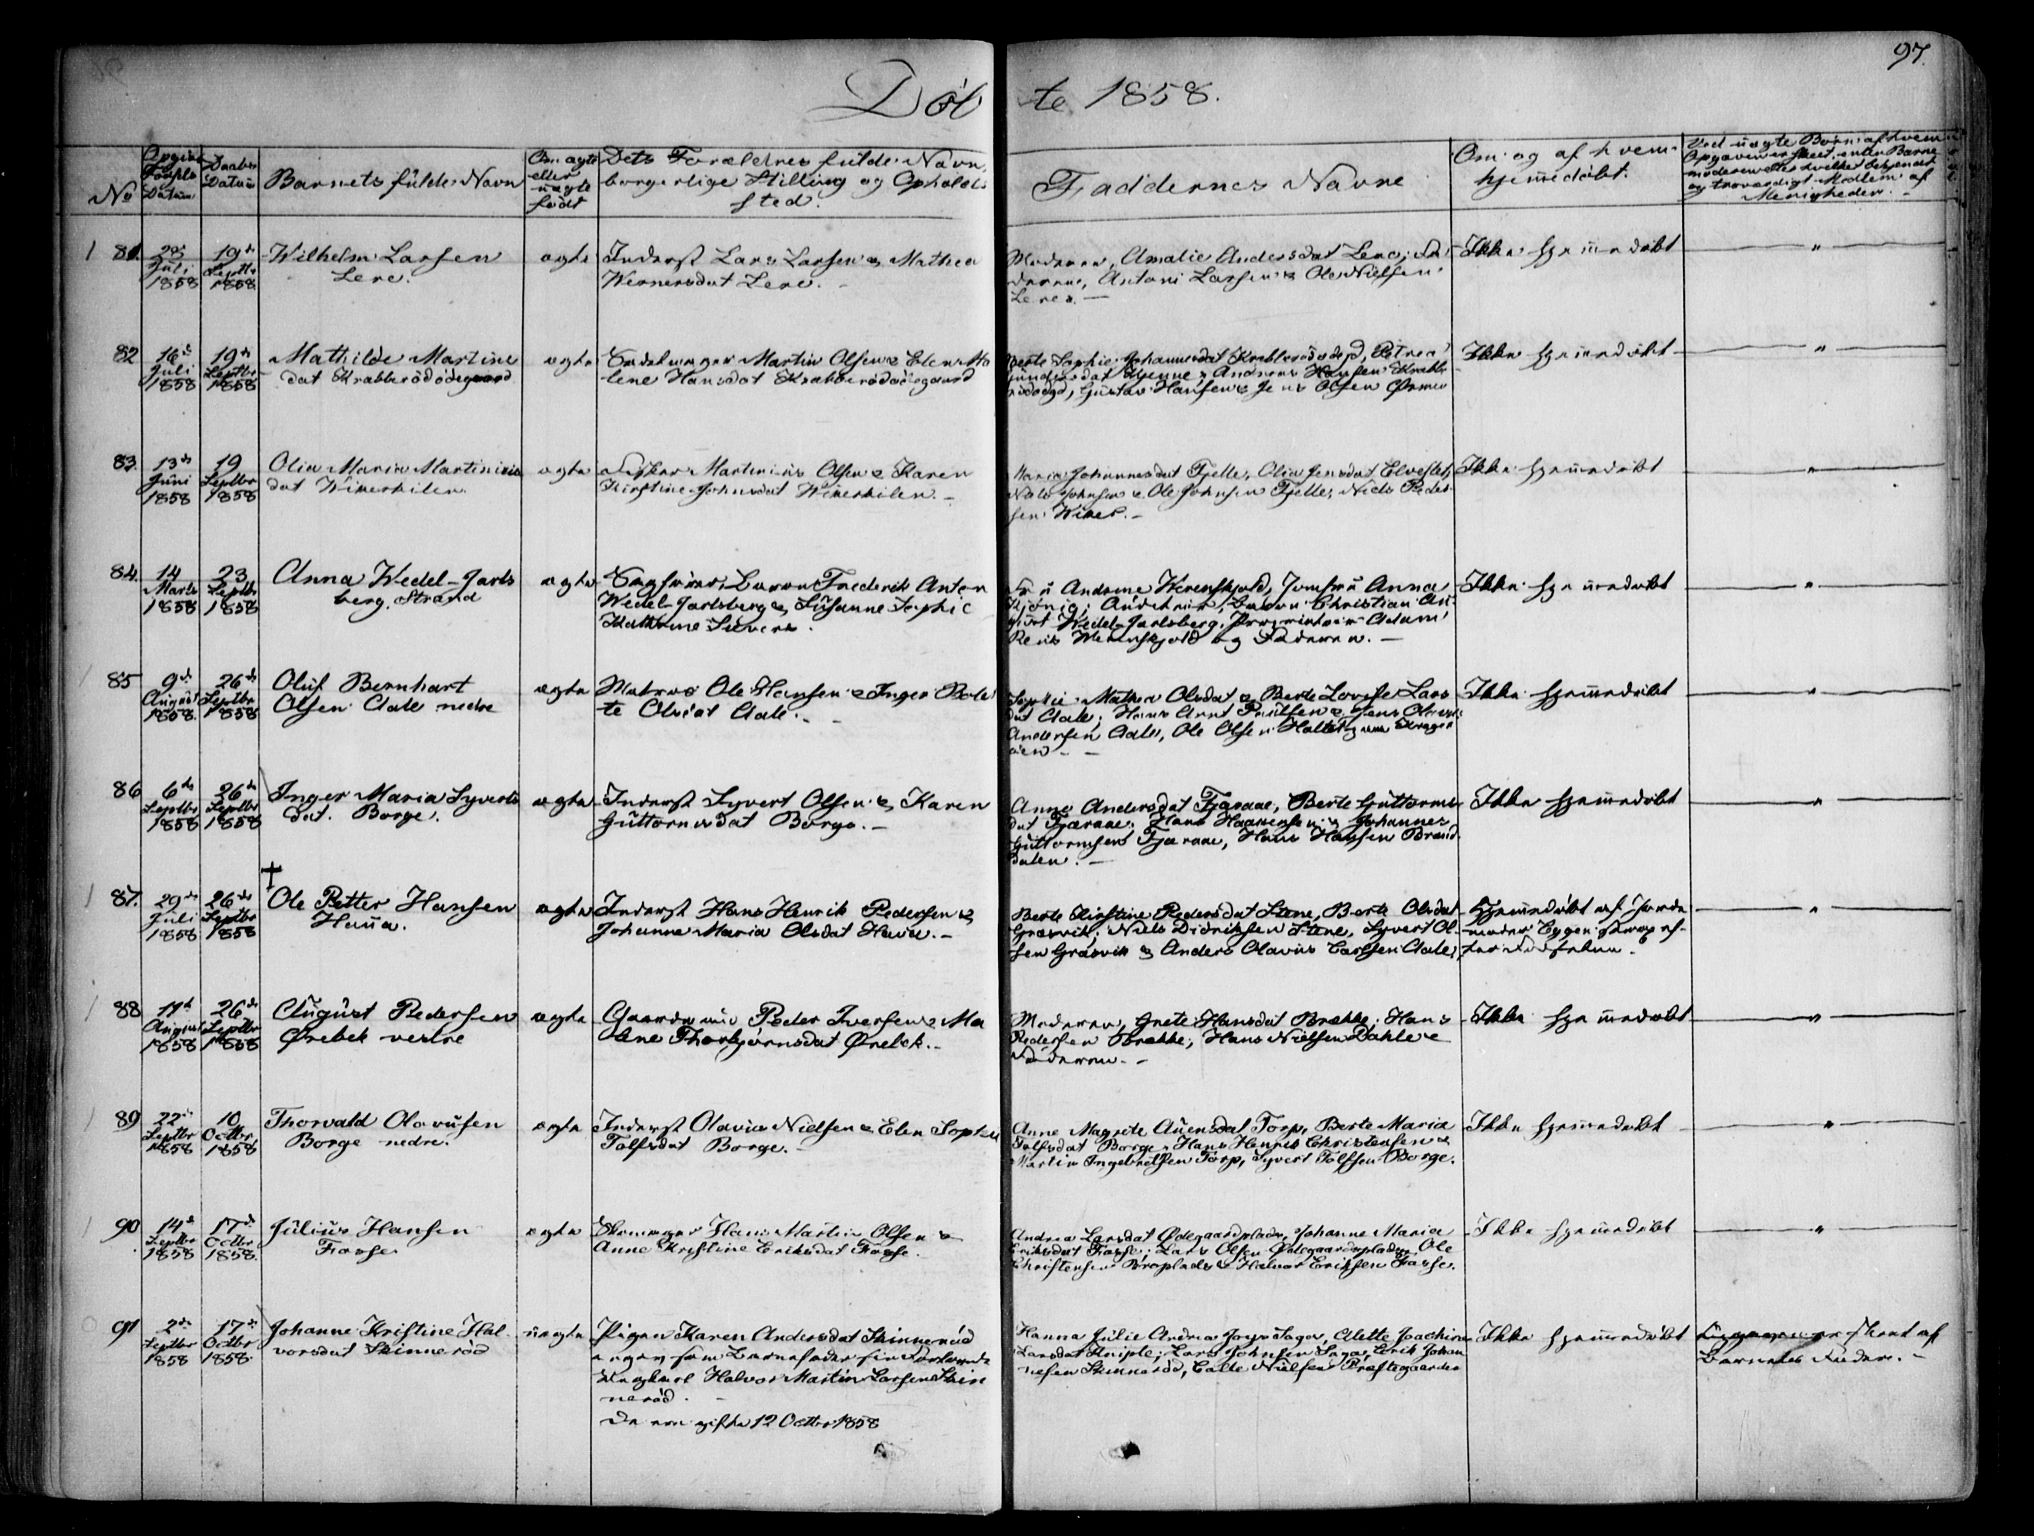 97.
Døbte 1858.
No
Datum
Daabs Datum
Barnets fulde Navn
Om ægte eller uægte født
Dets Forældres fulde Navn, borgerlige Stilling og Opholdssted.
Faddernes Navne
Om og af hvem hjemmedøbt.
Ved uægte Børn: af hvem Opgaven er skeet, enten Barnemoderen eller hvilket bekjendt og troværdigt Medlem af Menigheden.
81.
Juli
1858
19de
Septbr
1858.
Wilhelm Larsen
Lere.
ægte
Inderst Lars Larsen & Mathea
Wernersdat Lere.
Moderen, Amalie Andersdat Lere, Fa-
deren, Antoni Larsen & Ole Nielsen
Lere.
Ikke hjemmedøbt
"
82
16de
Juli
1858
19de
Septbr
1858
Mathilde Martine
dat Krabberødødegaard
ægte
Martin Olsen & Elen Ma
lene Hansdat Krabberødødegaard
Berte Sophie Johannesdat Petrea
Andreas Hansen
Gustav Hansen & Jens Olsen
Ikke hjemmedøbt
"
83.
13de
Juni
1858
19
Septbr
1858
Olia Maria Martinius
dat Wikerkilen
ægte
Fisker Martinius Olsen & Karen
Kirstine Johnsdat Wikerkilen.
Maria Johannesdat Fjelle, Olia Jensdat
Johnsen & Ole Johnsen Fjelle, Niels Peder
sen Wiker.
Ikke hjemmedøbt
"
84.
14
Marts
1858
23
Septbr
1858
Anna Wedel-Jarls
berg. Strand
ægte
Sagfører, Baron Frederik Anton
Wedel-Jarlsberg & Susanne Sophie
Kathrine Sievers.
Fru Andrine Werenskjold, Jomfru Anna
Baron Christian Au-
gust Wedel-Jarlsberg, Proprietair Adam
Werenskjold og Faderen.
Ikke hjemmedøbt
"
85
9de
August
1858.
26de
Septbr
1858
Oluf Bernhart
Olsen Aale nedre
ægte
Matros Ole Hansen & Inger Bole
te Olsdat Aale.
Sophie Mathea Olsdat & Berte Lovise Lars
dat Aale, Hans Arnt Paulsen & Jens Olavus
Andersen Aale, Ole Olsen
Ikke hjemmedøbt
"
86
6te
Septbr
1858
26de
Septbr
1858
Inger Maria Syverts
dat. Borge.
ægte
Inderst Syvert Olsen & Karen
Guttormsdat Borge.
Anne Andersdat Fjæraae, Berte Guttorms
dat Fjæraae, Hans Haagensen & Johannes
Guttormsen Fjæraae, Hans Hansen Brend
dalen.
Ikke hjemmedøbt
"
†
87.
29de
Juli
1858
26de
Septbr
1858
Ole Petter Hansen
Hauna.
ægte
Inderst Hans Henrik Pedersen &
Johanne Maria Olsdat
Berte Kirstine Pedersdat Stene, Berte Olsdat
Græsvik, Niels Didriksen Stene, Syvert Ol-
sen Græsvik & Anders Olavus Carlsen Aale.
Hjemmedøbt af Jorde
moder
"
88
August
1858
26de
Septbr
1858
August Pedersen
Ørebek vestre
ægte
Gaardm. Peder Iversen & Ma
lene Thorbjørnsdat Ørebek.
Moderen, Grete Hansdat Brække, Hans
Pedersen Brække, Hans Nielsen Dahle &
Faderen.
Ikke hjemmedøbt
"
89
22de
Septbr
1858
10
Octbr
1858
Thorvald Olavusen
Borge nedre.
ægte
Inderst Olavus Nielsen & Elen Sophie
Tolfsdat Borge.
Anne Magrete Auensdat Torp, Berte Maria
Tolfsdat Borge, Hans Henrik Christensen &
Martin Ingebretsen Torp, Syvert Tolfsen Borge.
Ikke hjemmedøbt
"
90
14de
Septbr
1858
17de
Octbr
1858.
Julius Hansen
Fosse
ægte
Skomager Hans Martin Olsen &
Anne Kristine Eriksdat Fosse.
Andrea Larsdat Ødegaardpladn, Johanne Maria
Eriksdat Fosse, Lars Olsen Ødegaardspladsn, Ole
Christensen & Halvor Eriksen Fosse.
Ikke hjemmedøbt
"
91
2de
Septbr
1858
17de
Octbr
1858.
Johanne Kristine Hal-
vorsdat Skinnerød
uægte
Pigen Karen Andersdat Skinnerød
angav som Barnefader sin Forlovede
Ungkarl Halvor Martin Larsen Skin
nerød.
De ere gifte 12 Octbr 1858
Hanna Julie Andrea
Larsdat Lars Johnsen Erik Johan
nesen Skinnerød, Calle Nielsen Præstegaarden
Ikke hjemmedøbt
Opgaven er skeet af
Barnets Fader.